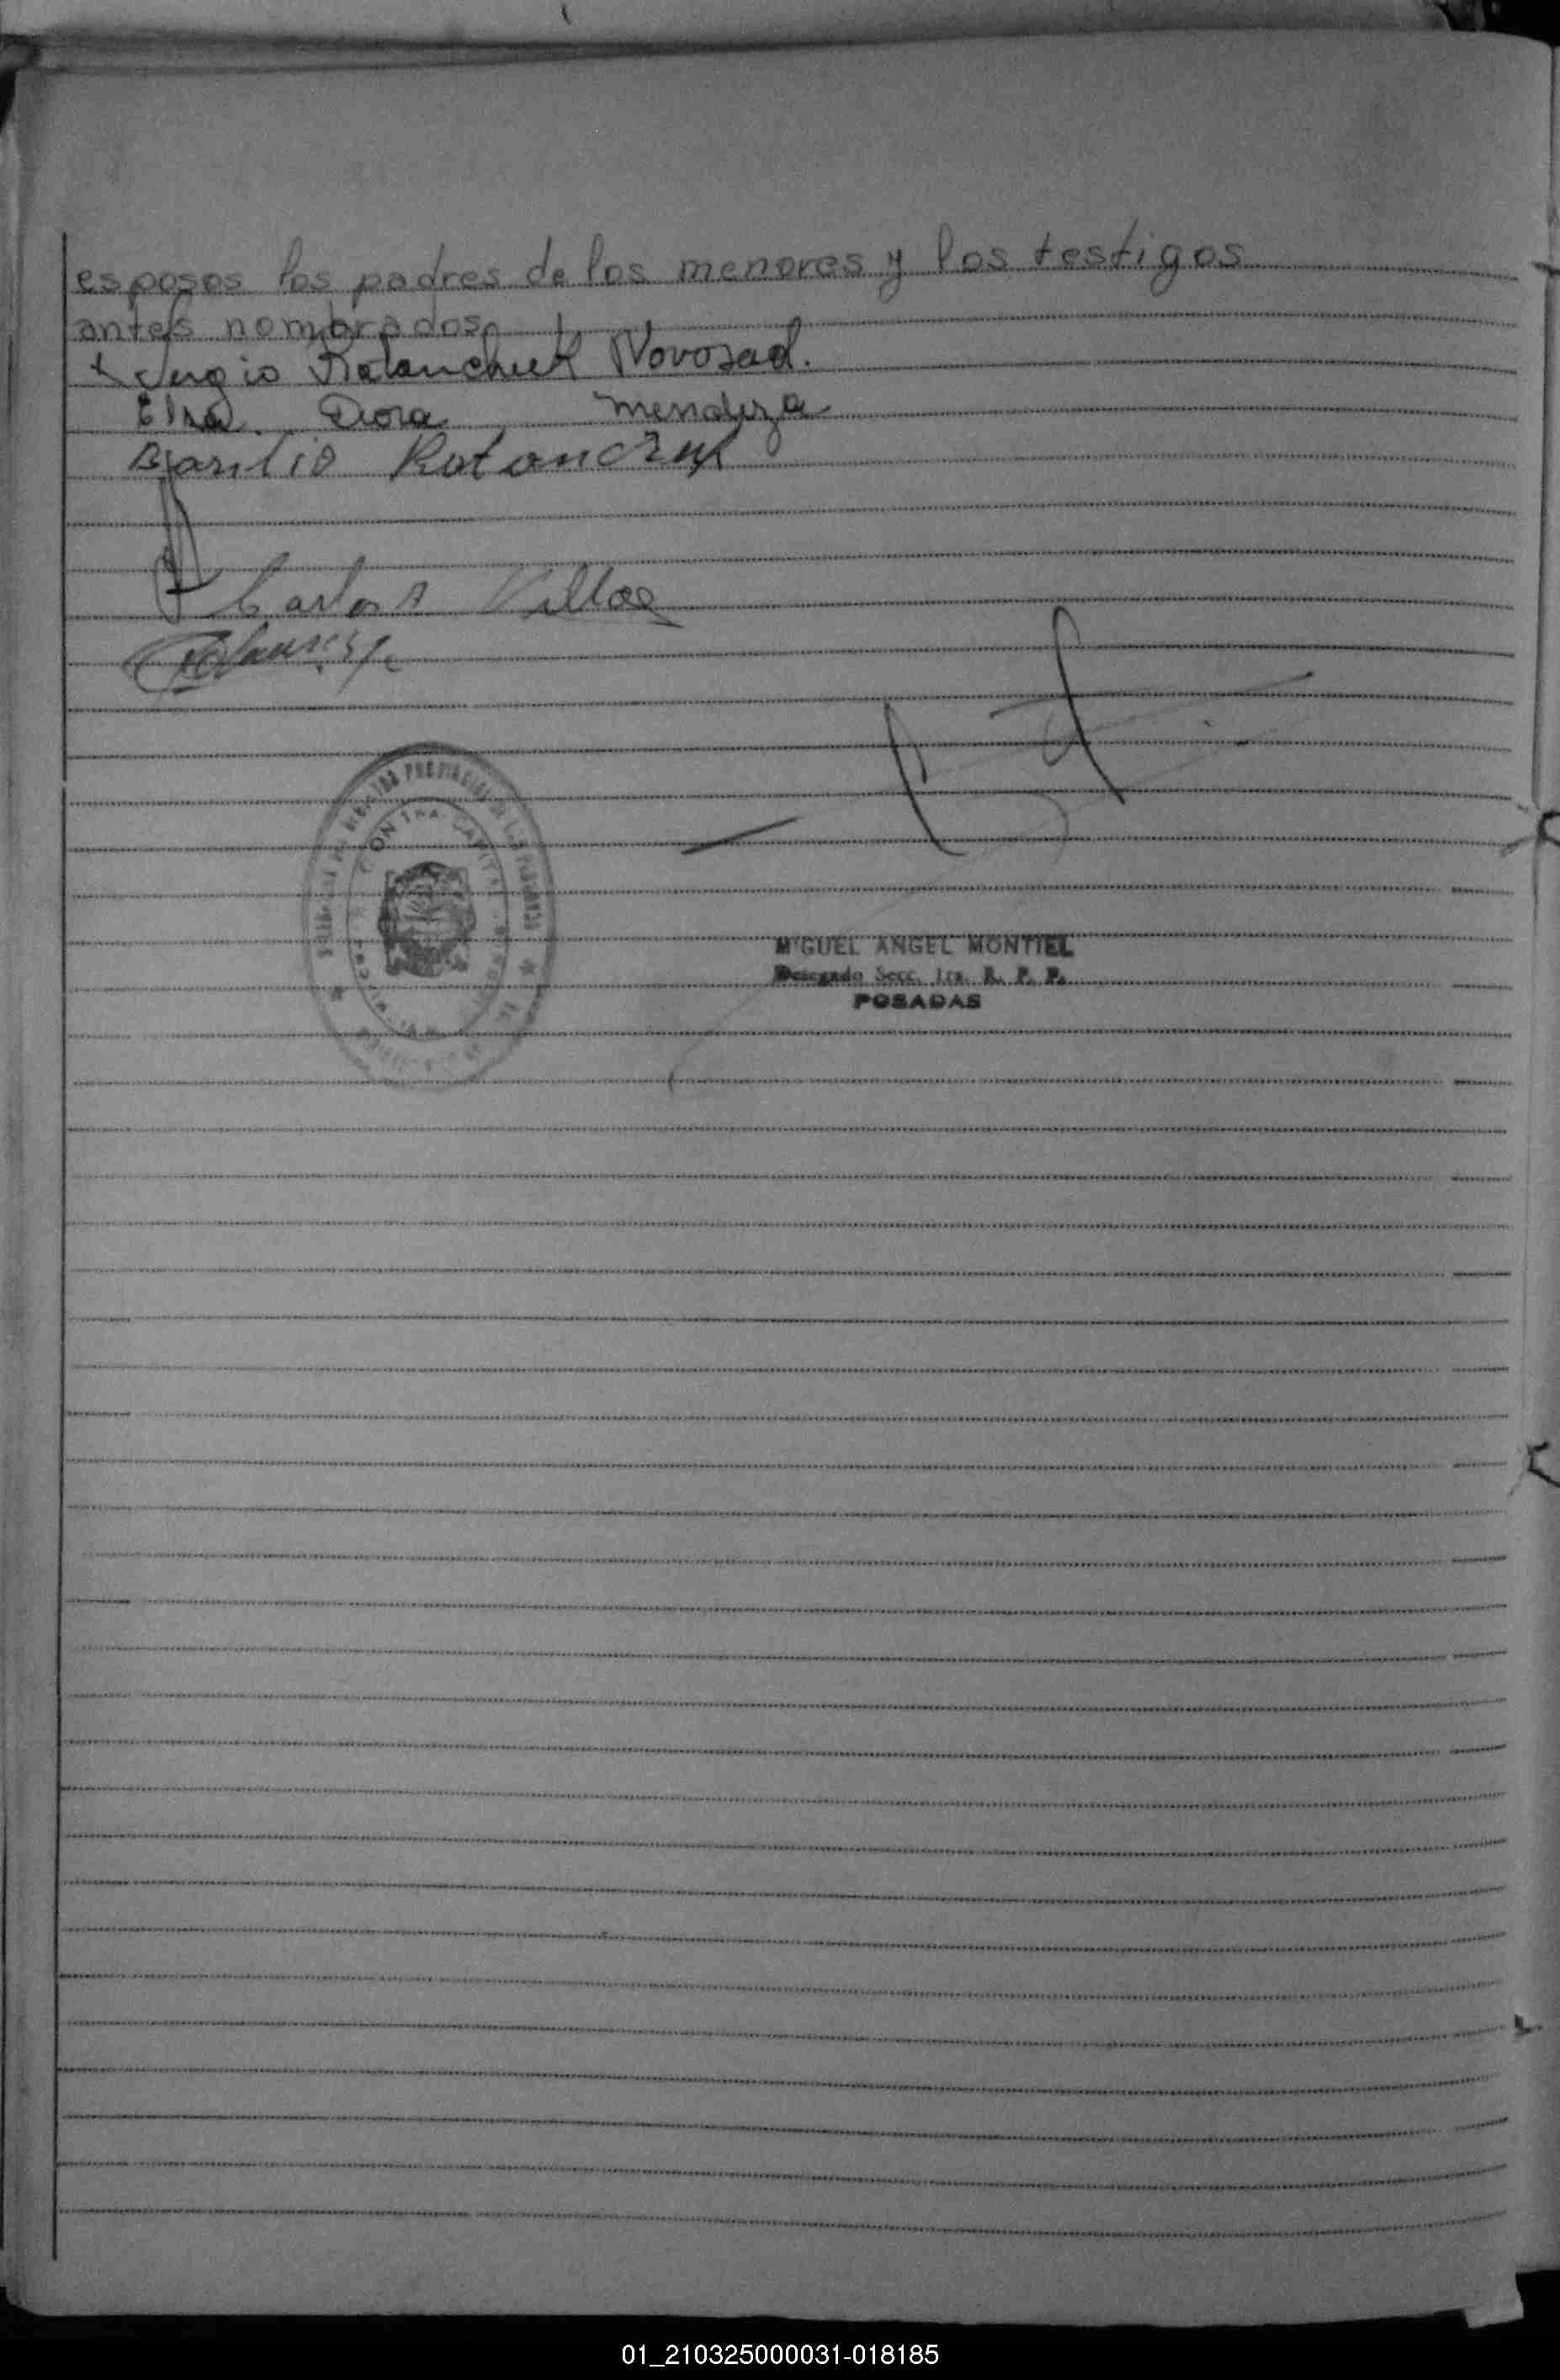 esposos los padres de los menores y los testigos
antes nombrados
Sergio Rotanchuck Novosad.
Elsa Dora Mendoza
Basilio Rotonczuk
Carlos A Villar
CONTRA CAPITAL
MIGUEL ANGEL MONTIEL
Delegado Secc. 1ra. R. P. P.
POSADAS
01_210325000031-018185